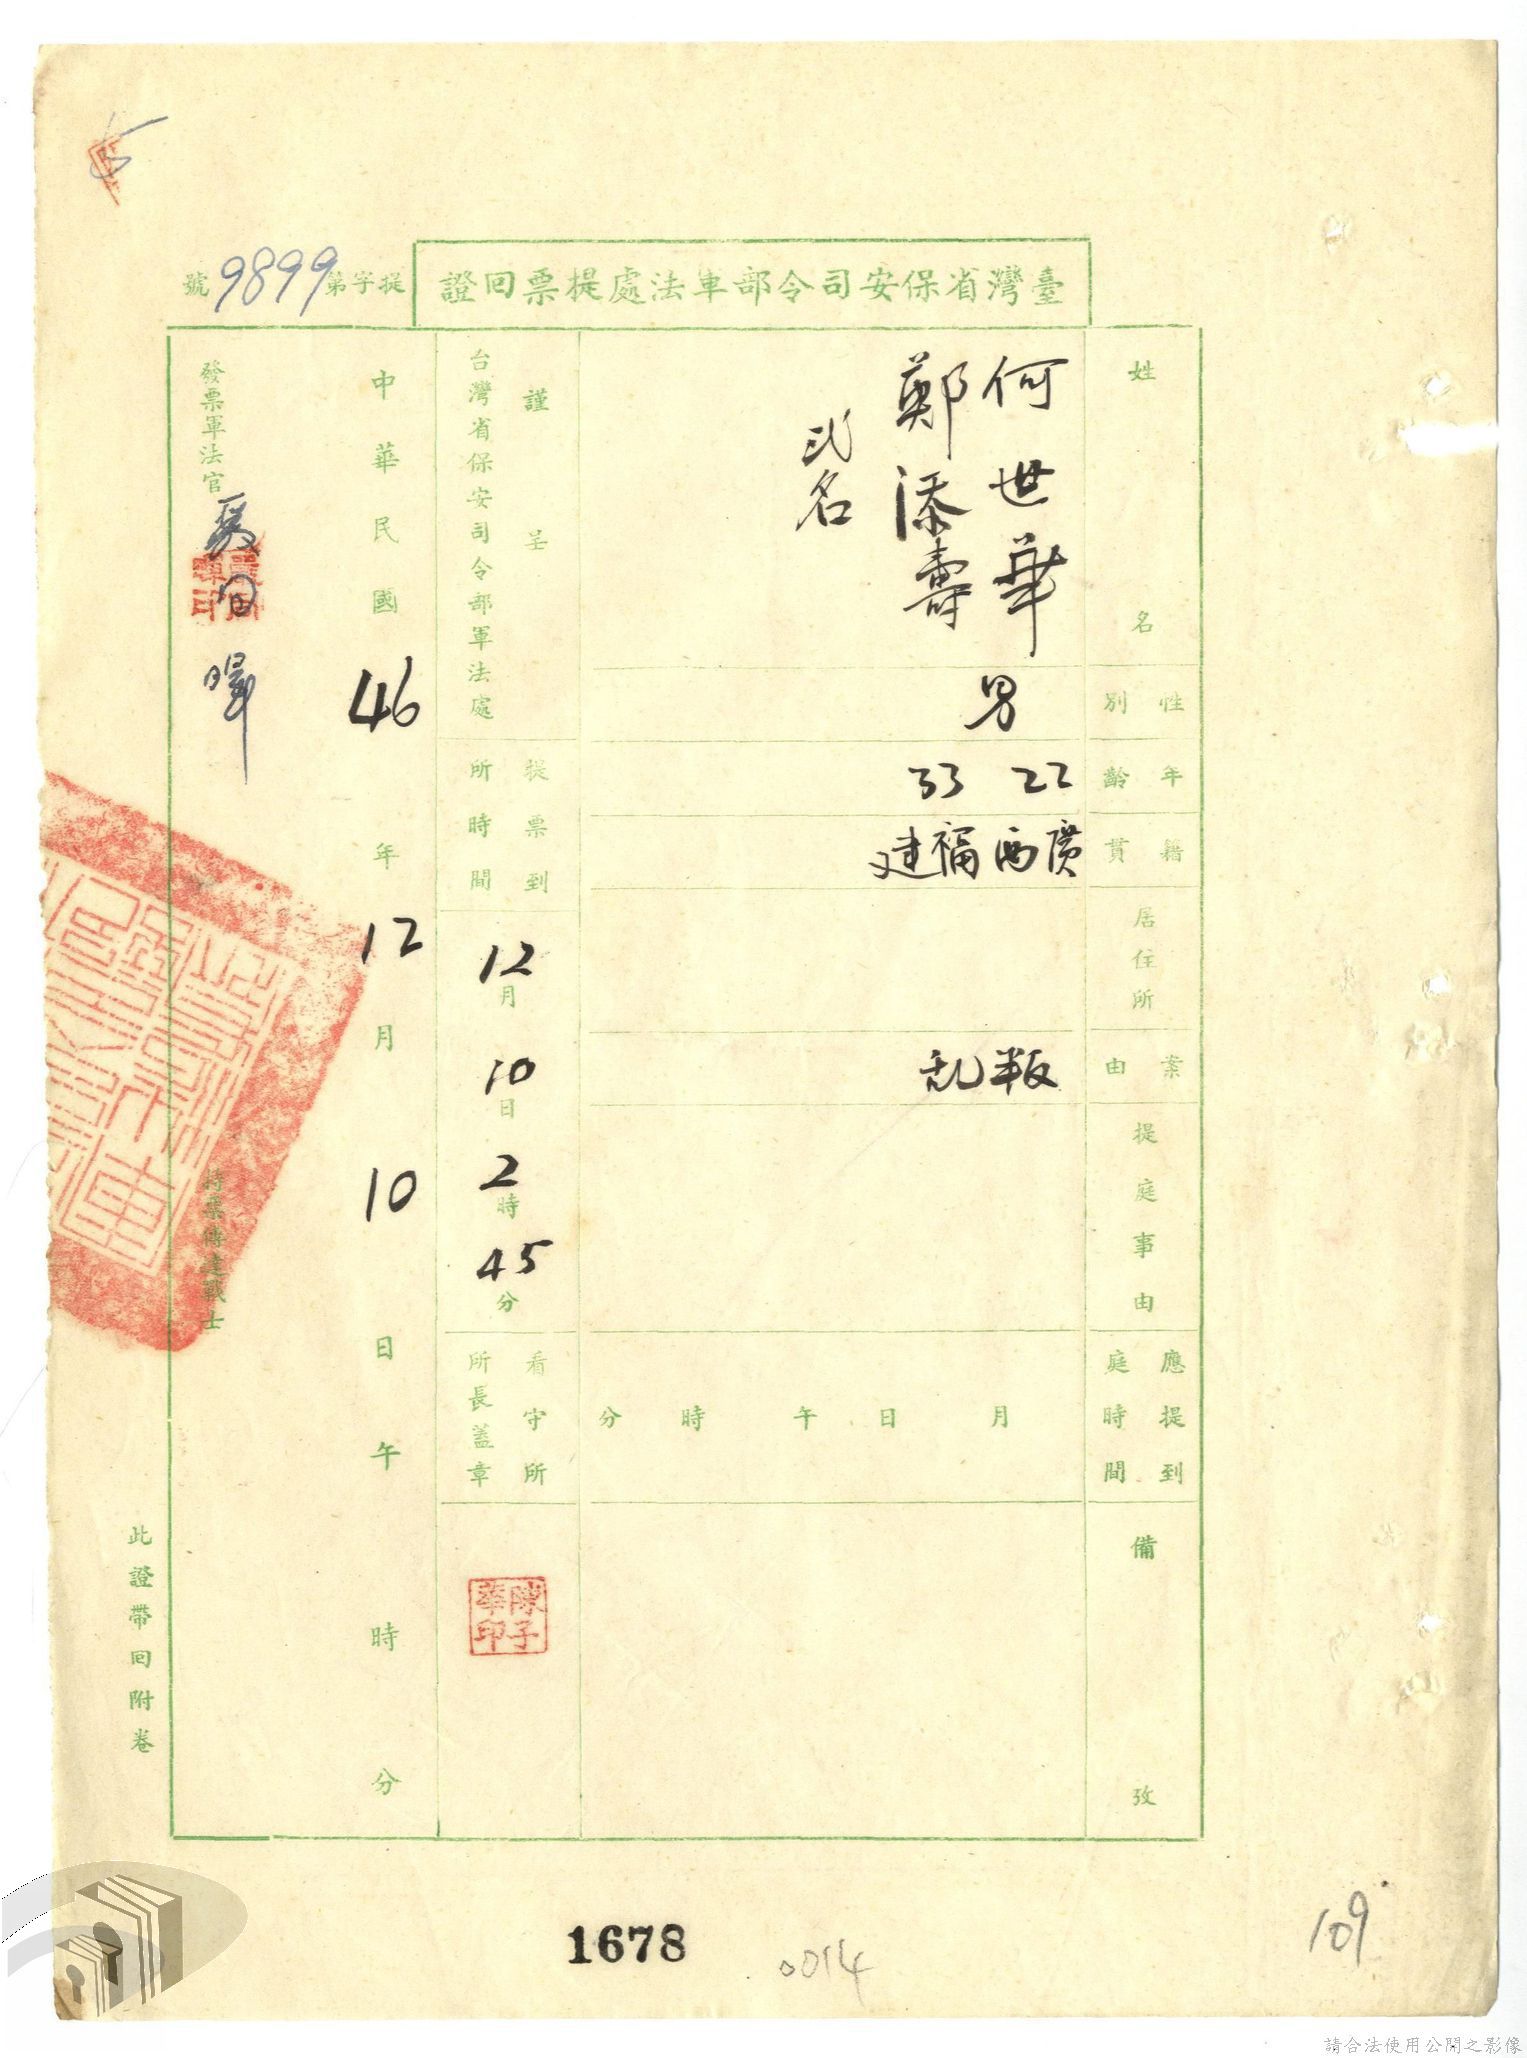 臺灣省保安司令部軍法處提票回證
提字第9899號
姓名
何世華
鄭添壽
弍名
性別
男
年齡
22
33
籍貫
廣西
福建
居住所
案由
叛乱
提庭事由
應提到庭時間
月 日 午 時 分
備攷
謹呈
台灣省保安司令部軍法處
提票到所時間
12月10日2時45分
看守所所長蓋章
陳子華印
中華民國46年12月10日午時分
發票軍法官
持票傳達戰士
此證帶回附卷
1678
0014
109
請合法使用公開之影像